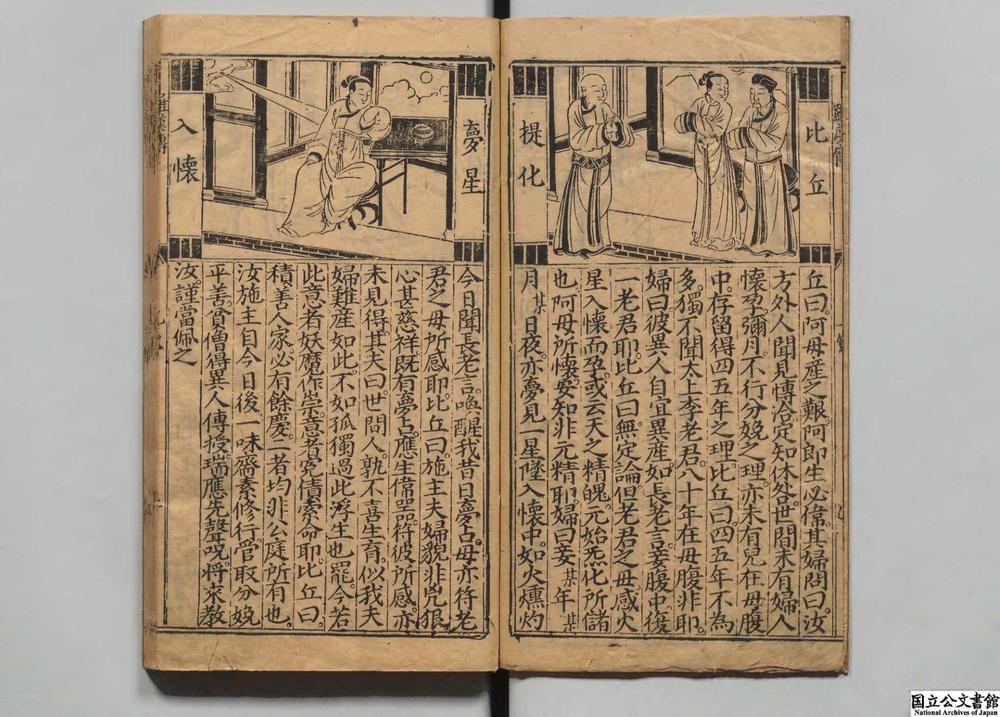 比丘
提化
丘曰。阿母產之艱。阿郎生必偉。其婦問曰。汝
方外人聞見博洽。定知休咎。世間未有婦人
懷孕彌月。不行分娩之理。亦未有兒在母腹
中。存留得四五年之理。比丘曰。四五年不為
多。獨不聞太上李老君。八十年在母腹非耶。
婦曰。彼異人自宜異產。如長老言。妾腹中復
一老君耶。比丘曰。無定論。但老君之母。感火
星入懷而孕。或云天之精魄。元始炁化所儲
也。阿母所懷。安知非元精耶。婦曰。妾某年某
月某日夜。亦夢見一星墜入懷中。如火燻灼
夢星
入懷
今日聞長老言。喚醒我昔日夢占。毋亦符老
君之母所感耶。比丘曰。施主夫婦。貌非兇狠。
心甚慈祥。既有夢占。應生偉器。符彼所感。亦
未見得。其夫曰。世間人孰不喜生育。似我夫
婦難產如此。不如孤獨過此浮生也罷。今若
此。意者妖魔作祟。意者冤債索命耶。比丘曰。
積善人家。必有餘慶。二者均非公庭所有也。
汝施主自今日後。一味齋素修行。管取分娩
平善。貧僧得異人傳授。瑞應先聲呪。將來教
汝。謹當佩之
国立公文書館
National Archives of Japan